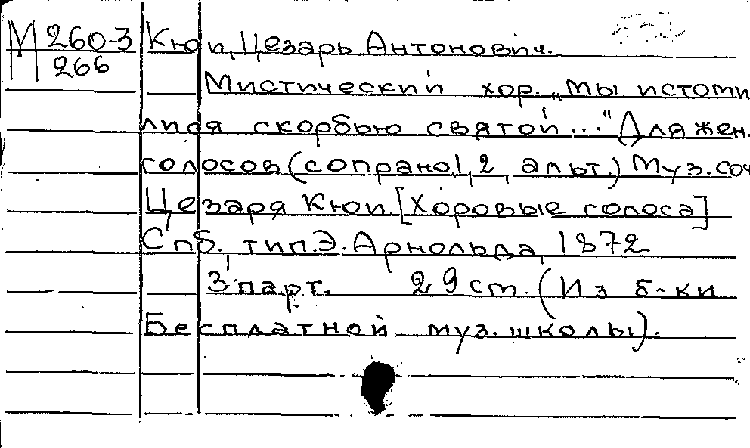 М 260-3 Кюи, Цезарь Антонович.
266
Мистический хор. „Мы истоми
лися скорбью святой..." Для жен.
голосов (сопрано 1, 2, альт.) Муз. соч
Цезаря Кюи. [Хоровые голоса]
Спб., тип. Э. Арнольда, 1872
3 парт. 29 cm. (Из б-ки
Бесплатной муз. школы).